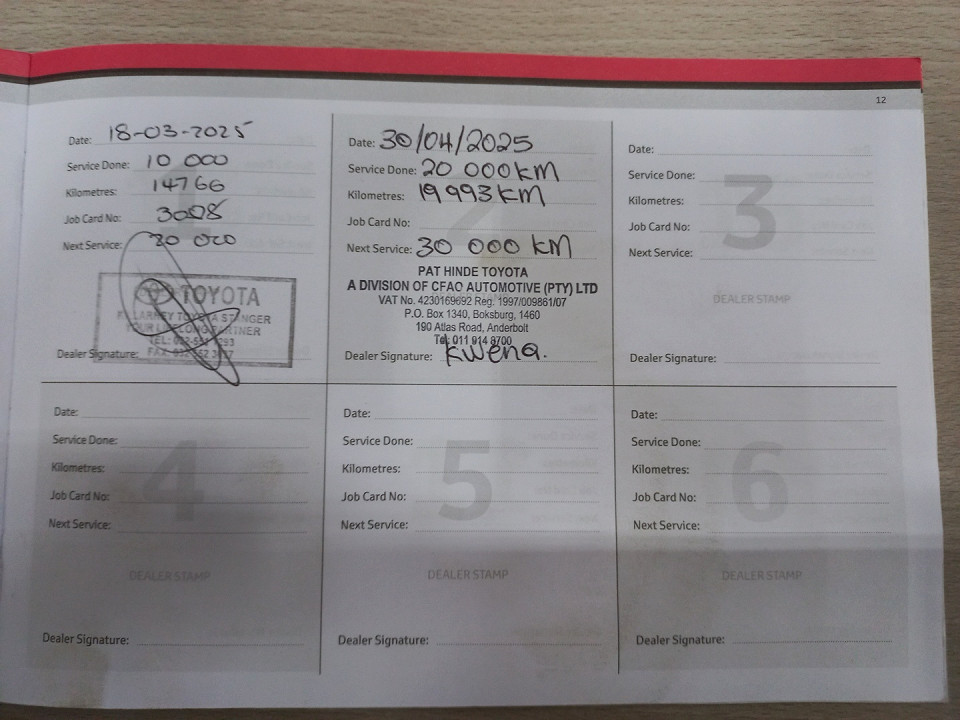 12
Date: 18-03-2025
Service Done: 10 000
Kilometres: 14766
Job Card No: 3008
Next Service: 20 000
TOYOTA
TOYOTA STANGER
YOUR LIFELONG PARTNER
TEL:
FAX
Dealer Signature:
Date: 30/04/2025
Service Done: 20 000km
Kilometres: 19 993km
Job Card No:
Next Service: 30 000 km
PAT HINDE TOYOTA
A DIVISION OF CFAO AUTOMOTIVE (PTY) LTD
VAT No. 4230169692 Reg. 1997/009861/07
P.O. Box 1340, Boksburg, 1460
190 Atlas Road, Anderbolt
Tel: 011 914 8700
Dealer Signature: Kwena.
Date:
Service Done:
Kilometres:
Job Card No:
Next Service:
3
DEALER STAMP
Dealer Signature:
Date:
Service Done:
Kilometres:
Job Card No:
Next Service:
4
DEALER STAMP
Dealer Signature:
Date:
Service Done:
Kilometres:
Job Card No:
Next Service:
5
DEALER STAMP
Dealer Signature:
Date:
Service Done:
Kilometres:
Job Card No:
Next Service:
6
DEALER STAMP
Dealer Signature: